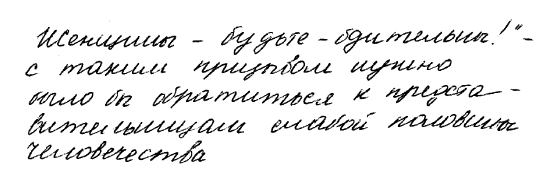 Женщины - будьте - бдительны!" -
с таким призывом нужно
было бы обратиться к предста -
вительницам слабой половины
человечества